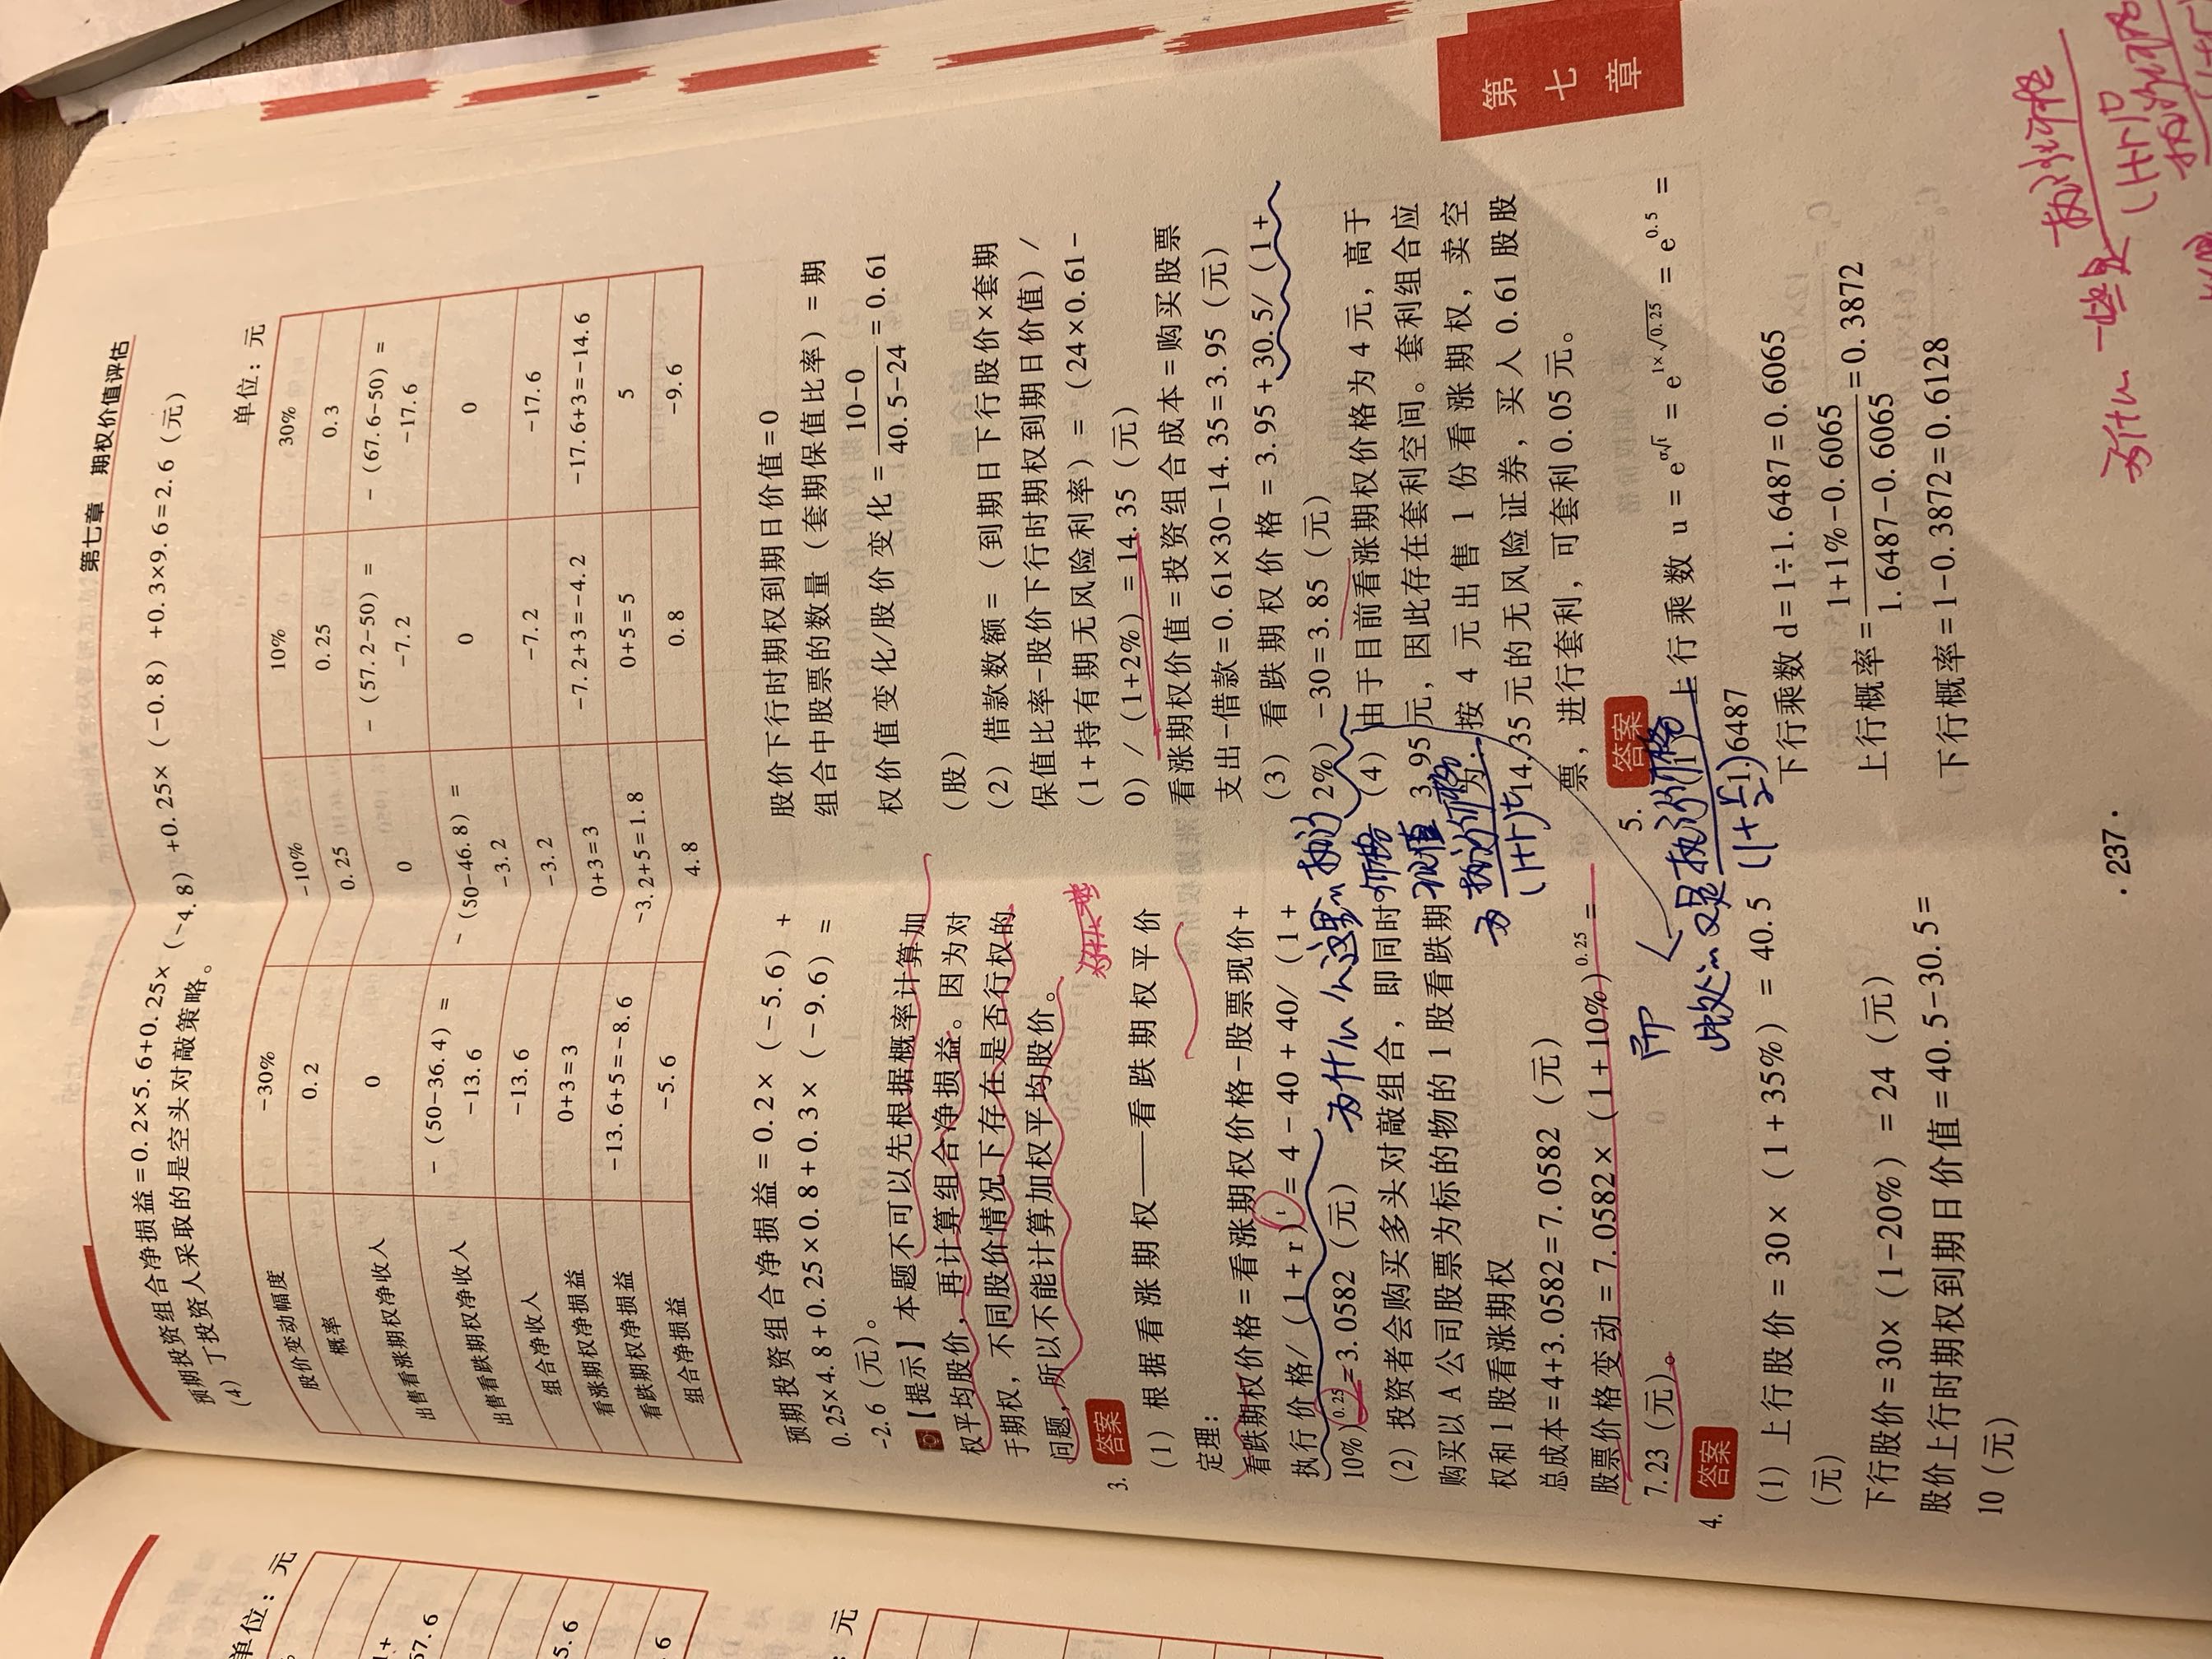 第七章 期权价值评估
预期投资组合净损益=0.2×5.6+0.25×(-4.8)+0.25×(-0.8)+0.3×9.6=2.6(元)
(4)丁投资人采取的是空头对敲策略。
单位:元
股价变动幅度 -30% -10% 10% 30%
概率 0.2 0.25 0.25 0.3
出售看涨期权净收入 0 0 -(57.2-50)=-7.2 -(67.6-50)=-17.6
出售看跌期权净收入 -(50-36.4)=-13.6 -(50-46.8)=-3.2 0 0
组合净收入 -13.6 -3.2 -7.2 -17.6
看涨期权净损益 0+3=3 0+3=3 -7.2+3=-4.2 -17.6+3=-14.6
看跌期权净损益 -13.6+5=-8.6 -3.2+5=1.8 0+5=5 5
组合净损益 -5.6 4.8 0.8 -9.6
预期投资组合净损益=0.2×(-5.6)+
0.25×4.8+0.25×0.8+0.3×(-9.6)=
-2.6(元)。
【提示】本题不可以先根据概率计算加
权平均股价,再计算组合净损益。因为对
于期权,不同股价情况下存在是否行权的
问题,所以不能计算加权平均股价。
3. 答案
(1)根据看涨期权——看跌期权平价
定理:
看跌期权价格=看涨期权价格-股票现价+
执行价格/(1+r)=4-40+40/(1+
10%)^0.25=3.0582(元)
为什么这里是执行价格现值为执行价格/(1+r)^t
(2)投资者会购买多头对敲组合,即同时
购买以A公司股票为标的物的1股看跌期
权和1股看涨期权
总成本=4+3.0582=7.0582(元)
股票价格变动=7.0582×(1+10%)^0.25=
7.23(元)。
而此处又是执行价格/(1+
4. 答案
(1)上行股价=30×(1+35%)=40.5
(元)
下行股价=30×(1-20%)=24(元)
股价上行时期权到期日价值=40.5-30.5=
10(元)
股价下行时期权到期日价值=0
组合中股票的数量(套期保值比率)=期
权价值变化/股价变化=(10-0)/(40.5-24)=0.61
(股)
(2)借款数额=(到期日下行股价×套期
保值比率-股价下行时期权到期日价值)/
(1+持有期无风险利率)=(24×0.61-
0)/(1+2%)=14.35(元)
看涨期权价值=投资组合成本=购买股票
支出-借款=0.61×30-14.35=3.95(元)
(3)看跌期权价格=3.95+30.5/(1+
2%)-30=3.85(元)
(4)由于目前看涨期权价格为4元,高于
3.95元,因此存在套利空间。套利组合应
为:按4元出售1份看涨期权,卖空
14.35元的无风险证券,买入0.61股股
票,进行套利,可套利0.05元。
5. 答案
上行乘数u=e^σ√t=e^1×√0.25=e^0.5=
1.6487
下行乘数d=1÷1.6487=0.6065
上行概率=(1+1%-0.6065)/(1.6487-0.6065)=0.3872
下行概率=1-0.3872=0.6128
第七章
·237·
为什么一些是